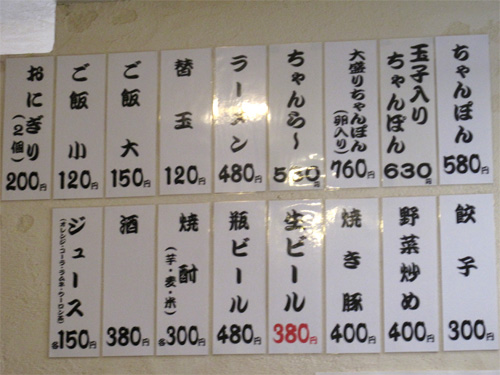 ちゃんぽん
580円
玉子入り
ちゃんぽん
630円
大盛りちゃんぽん
(卵入り)
760円
ちゃんら〜
ラーメン
480円
替玉
120円
ご飯 大
150円
ご飯 小
120円
おにぎり
(2個)
200円
餃子
300円
野菜炒め
400円
焼き豚
400円
生ビール
380円
瓶ビール
480円
焼酎
(芋・麦・米)
各300円
酒
380円
ジュース
(オレンジ・コーラ・ラムネ・ウーロン茶)
各150円